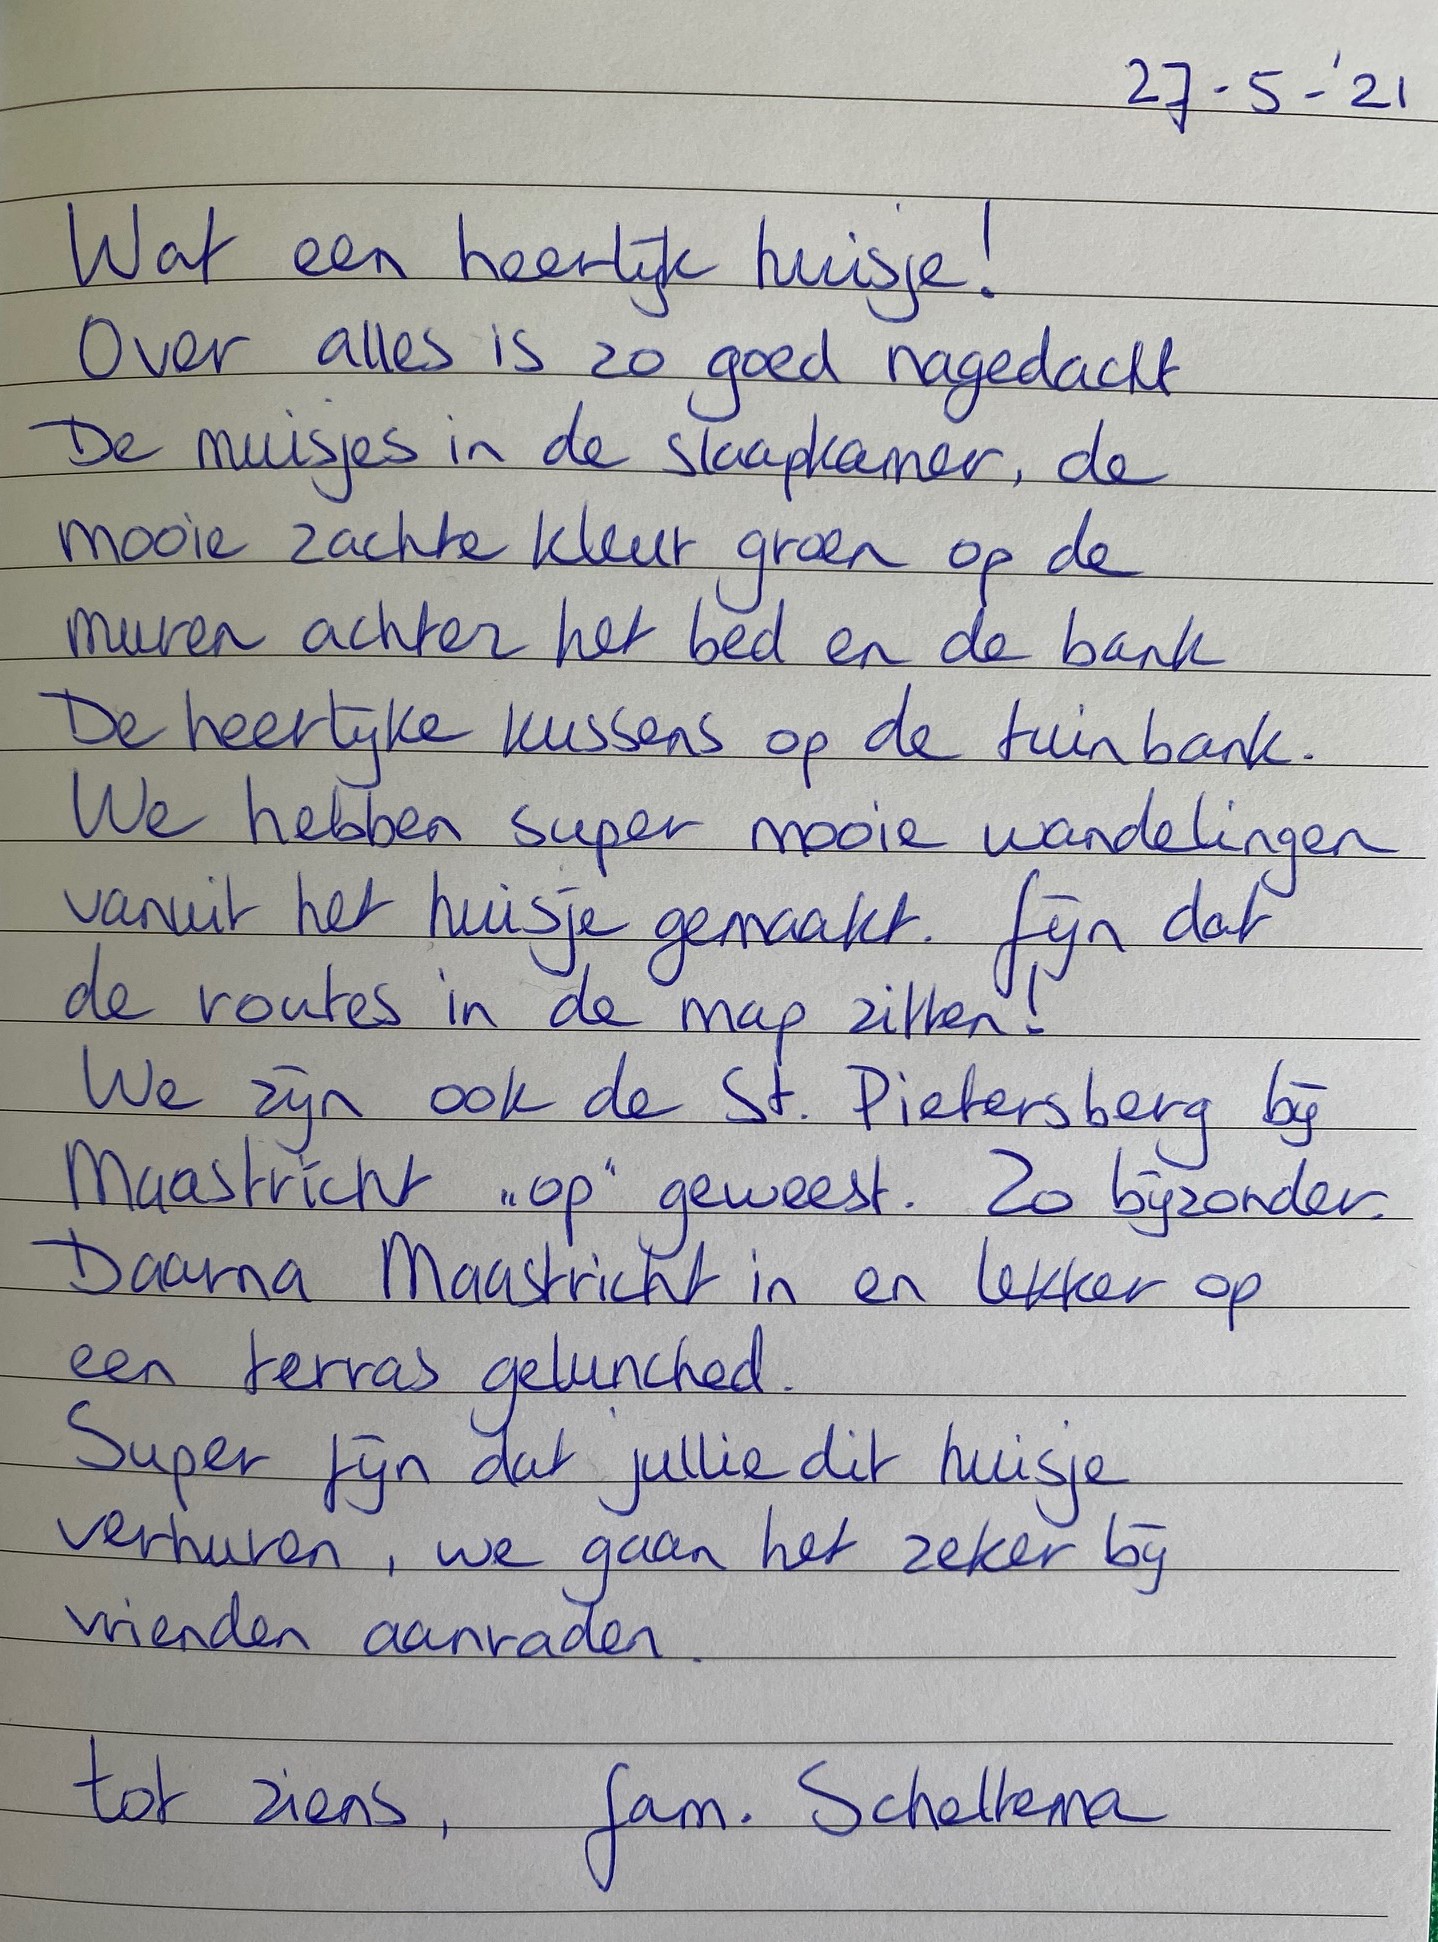 27-5-'21
Wat een heerlijk huisje!
Over alles is zo goed nagedacht
De muisjes in de slaapkamer, de
mooie zachte kleur groen op de
muren achter het bed en de bank
De heerlijke kussens op de tuinbank.
We hebben super mooie wandelingen
vanuit het huisje gemaakt. fijn dat
de routes in de map zitten!
We zijn ook de St. Pietersberg bij
Maastricht „op“ geweest. Zo bijzonder.
Daarna Maastricht in en lekker op
een terras gelunched.
Super fijn dat jullie dit huisje
verhuren, we gaan het zeker bij
vrienden aanraden.
tot ziens, fam. Scheltema